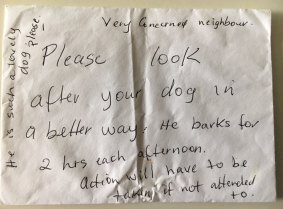 Very Concerned neighbour.
Please look
after your dog in
a better way. He barks for
2 hrs each afternoon.
Action will have to be
taken if not attended
to.
He is such a lovely
dog please